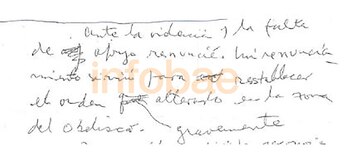 ante la violencia y la falta
de apoyo renuncié. Mi renuncia
miento sirvió para restablecer
el orden alterado en la zona
del obelisco. gravemente
infobae